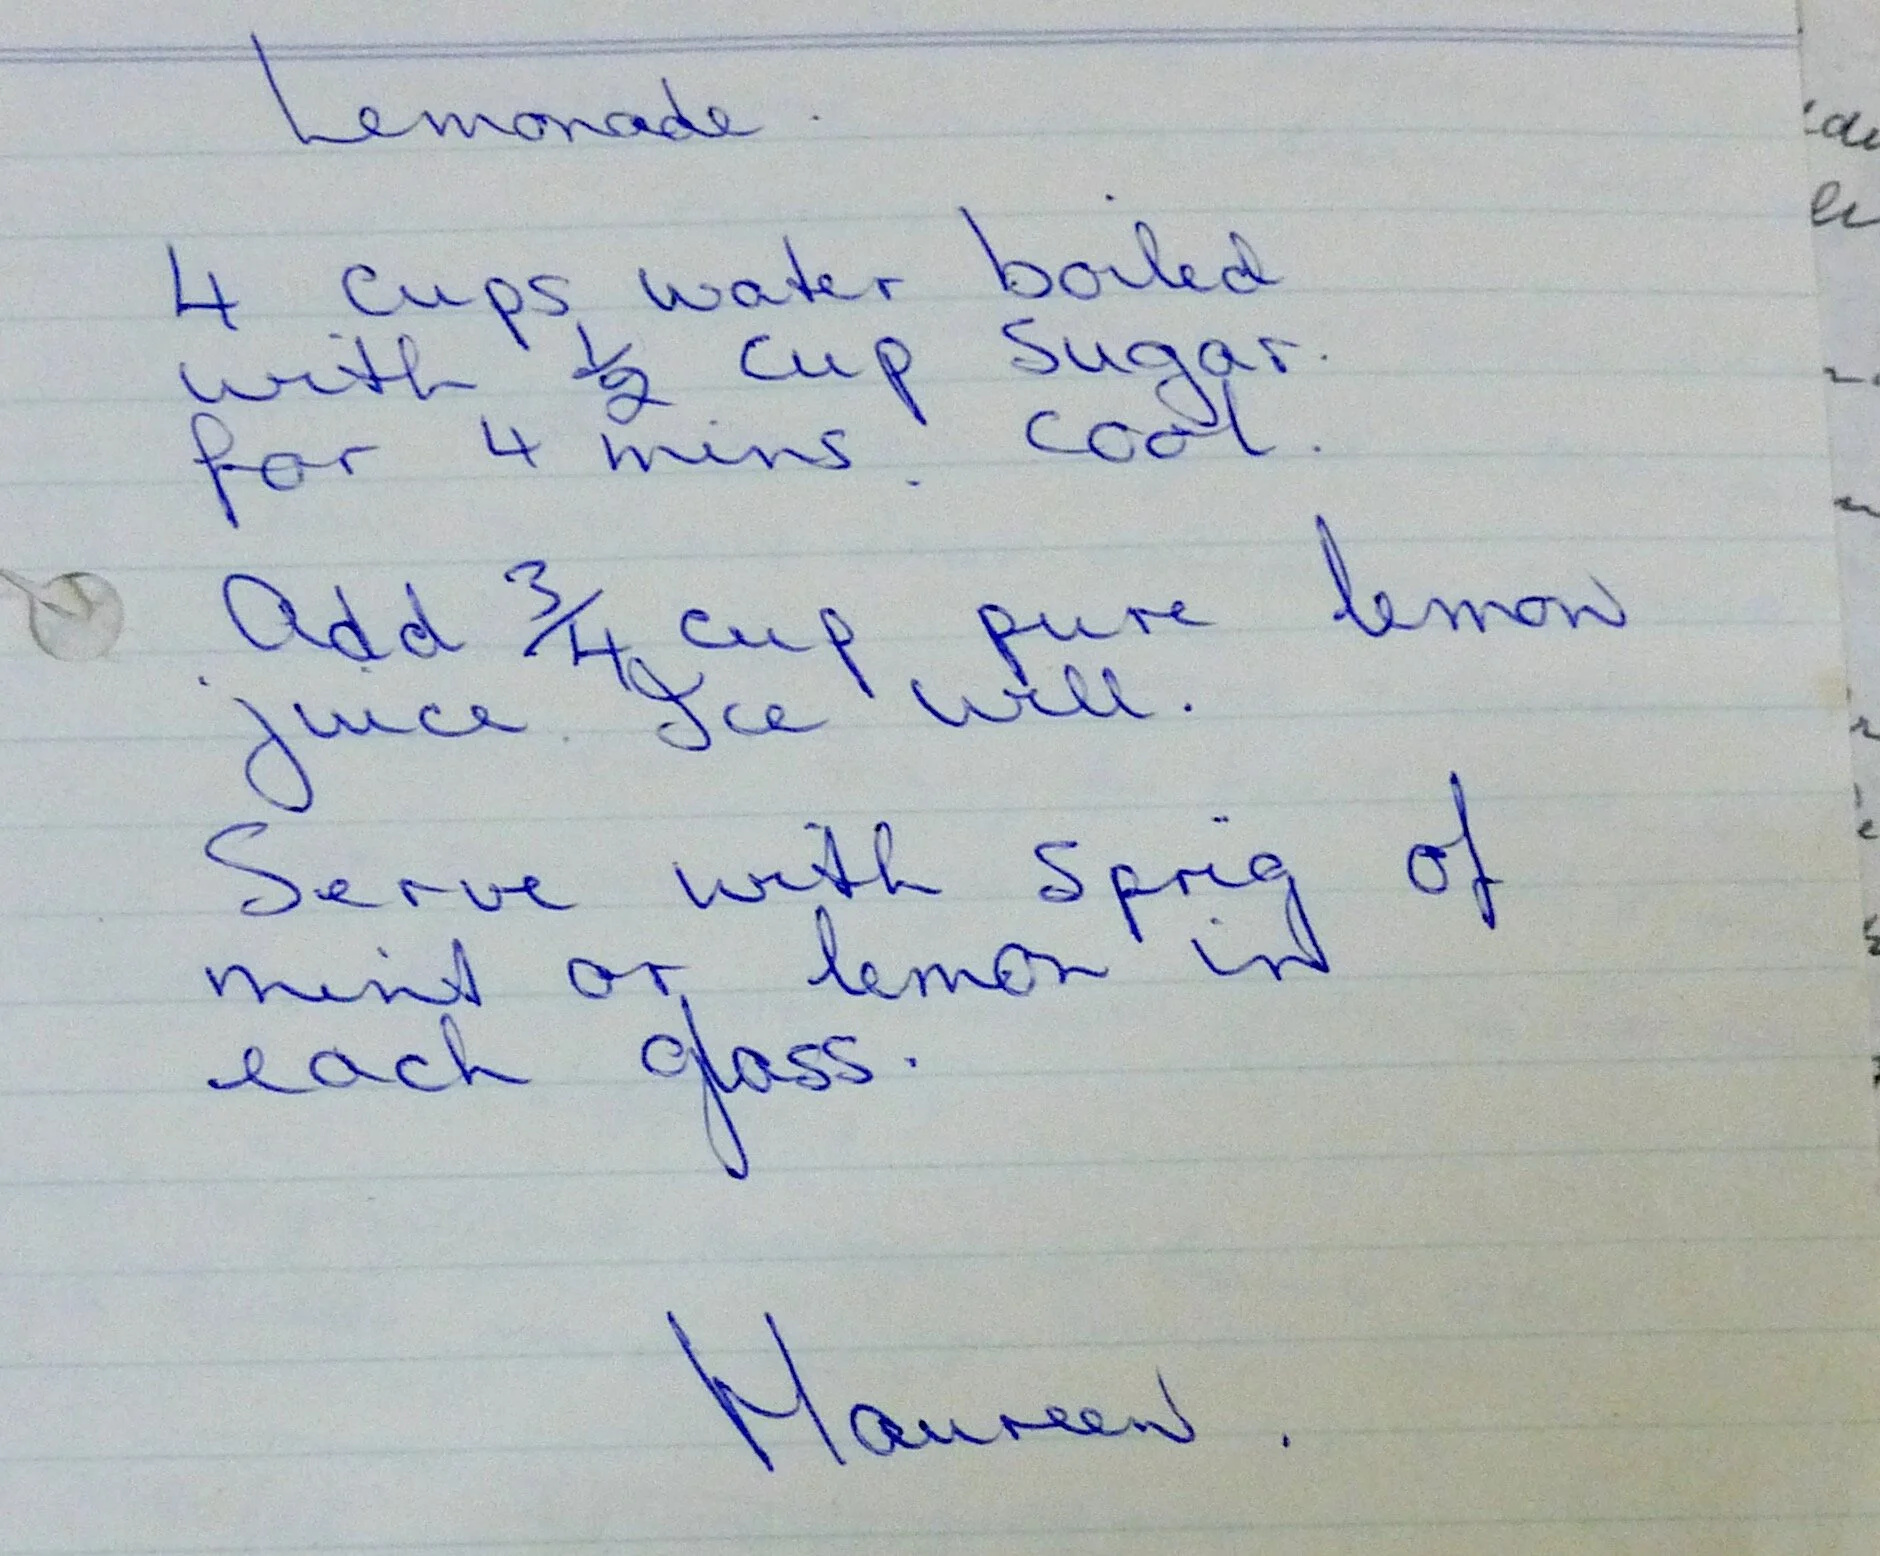 Lemonade.
4 cups water boiled
with ½ cup sugar.
for 4 mins. Cool.
Add ¾ cup pure lemon
juice. Ice will.
Serve with sprig of
mint or lemon in
each glass.
Maureen.